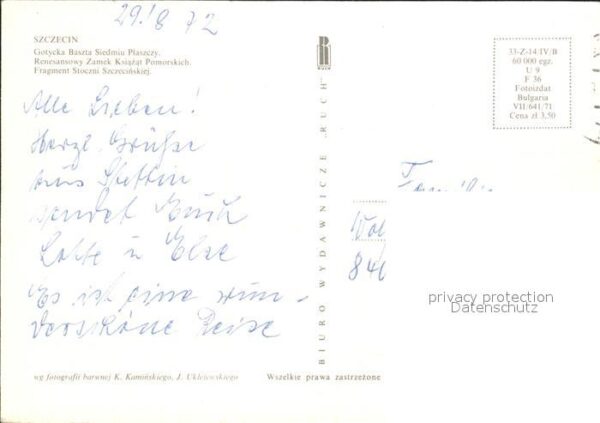 29.8 72
SZCZECIN
Gotycka Baszta Siedmiu Płaszczy.
Renesansowy Zamek Książąt Pomorskich.
Fragment Stoczni Szczecińskiej.
Alle Lieben!
Herzl. Grüße
aus Stettin
sendet Euch
Lotte u Else
Es ist eine wun-
derschöne Reise
wg fotografii barwnej K. Kamińskiego, J. Uklejewskiego
Wszelkie prawa zastrzeżone
BIURO WYDAWNICZE „RUCH"
33-Z-14 IV/B
60 000 egz.
U 9
F 36
Fotoizdat
Bulgaria
VII/641/71
Cena zł 3,50
privacy protection
Datenschutz